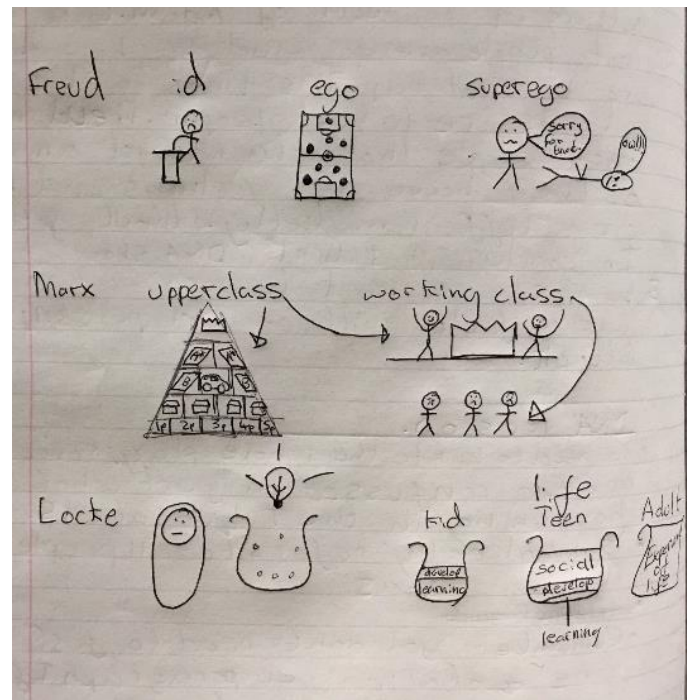 Freud id ego superego
sorry
for
that.
ow!!!
Marx upperclass working class
1p 2p 3p 4p 5p
Locke
life
Kid Teen Adult
develop
learning
social
develop
learning
Experience
of
life